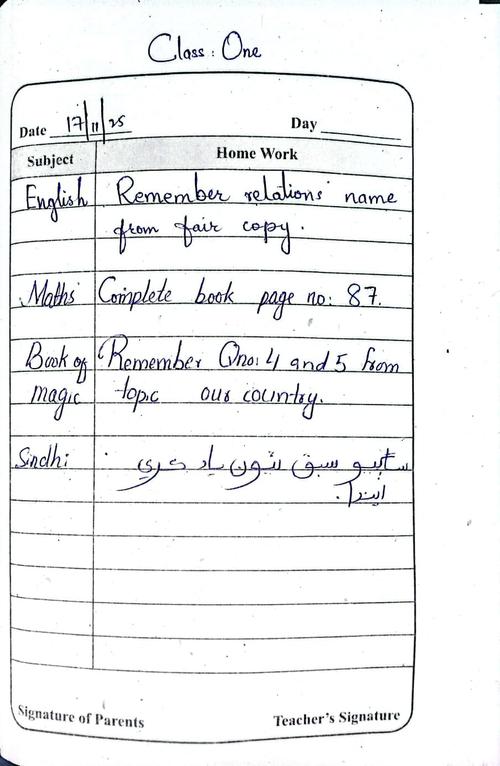 Class : One
Date 17/11/25 Day
Subject Home Work
English Remember relations' name
from fair copy.
Maths Complete book page no: 87.
Book of Remember Qno: 4 and 5 from
magic topic our country.
Sindhi سبق ياد ڪري
ايندا.
Signature of Parents Teacher's Signature